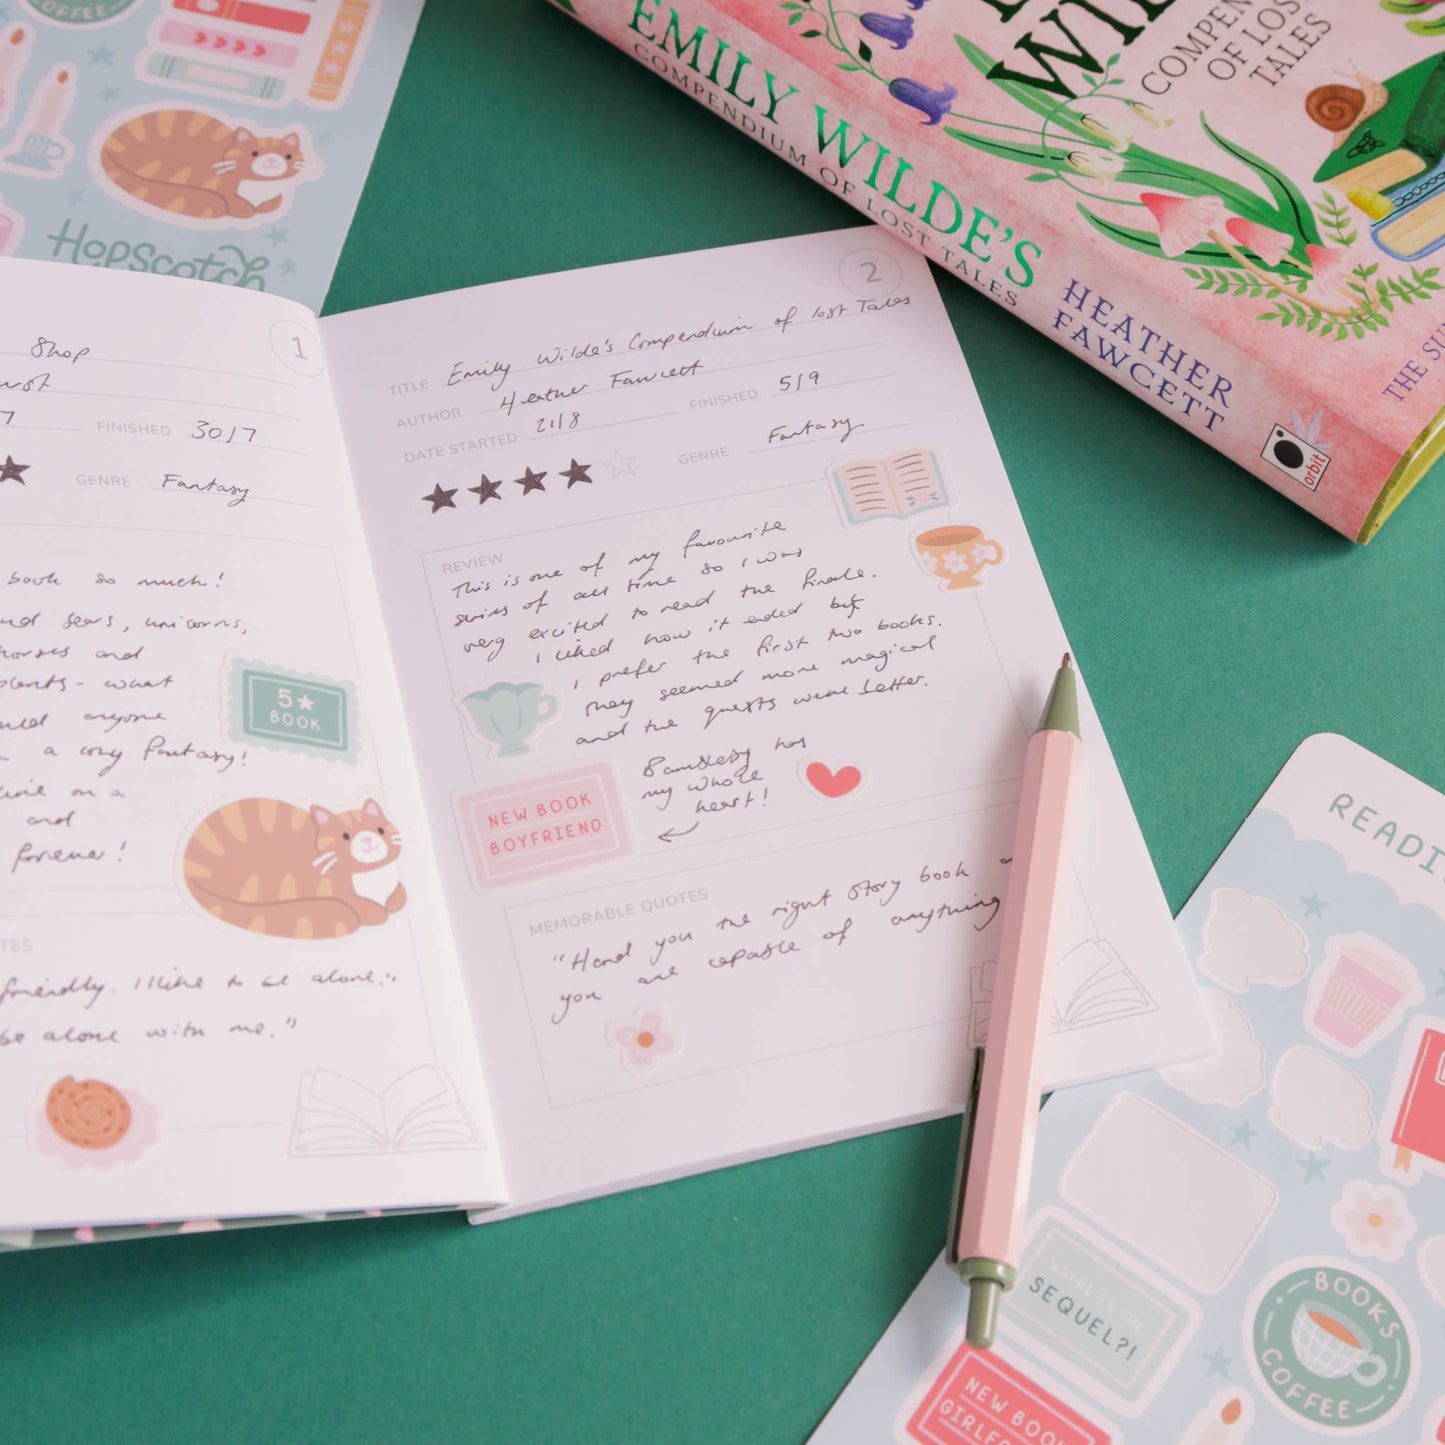 COFFEE
Hopscotch
EMILY WILDE'S
COMPENDIUM OF LOST TALES
HEATHER
FAWCETT
orbit
COMPENDIUM
OF LOST
TALES
1
Shop
FINISHED 30/7
GENRE Fantasy
book so much!
and bears, unicorns,
horses and
plants - what
anyone
a cosy fantasy!
on a
and
forever!
5★
BOOK
friendly. I like to be alone."
be alone with me."
2
TITLE Emily Wilde's Compendium of lost Tales
AUTHOR Heather Fawcett
DATE STARTED 21/8 FINISHED 5/9
GENRE Fantasy
REVIEW
This is one of my favourite
series of all time so I was
very excited to read the finale.
I liked how it ended but
I prefer the first two books.
They seemed more magical
and the quests were better.
Bambleby has
my whole
heart!
NEW BOOK
BOYFRIEND
MEMORABLE QUOTES
"Hand you the right story book
you are capable of anything
READI
WHERE IS THE
SEQUEL?!
BOOKS
COFFEE
NEW BOOK